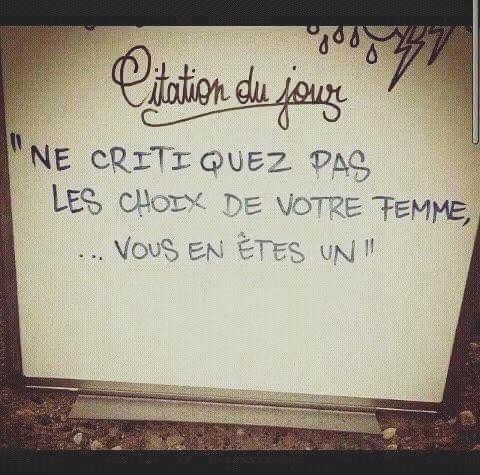 Citation du jour
"NE CRITIQUEZ PAS
LES CHOIX DE VOTRE FEMME,
... VOUS EN ÊTES UN"